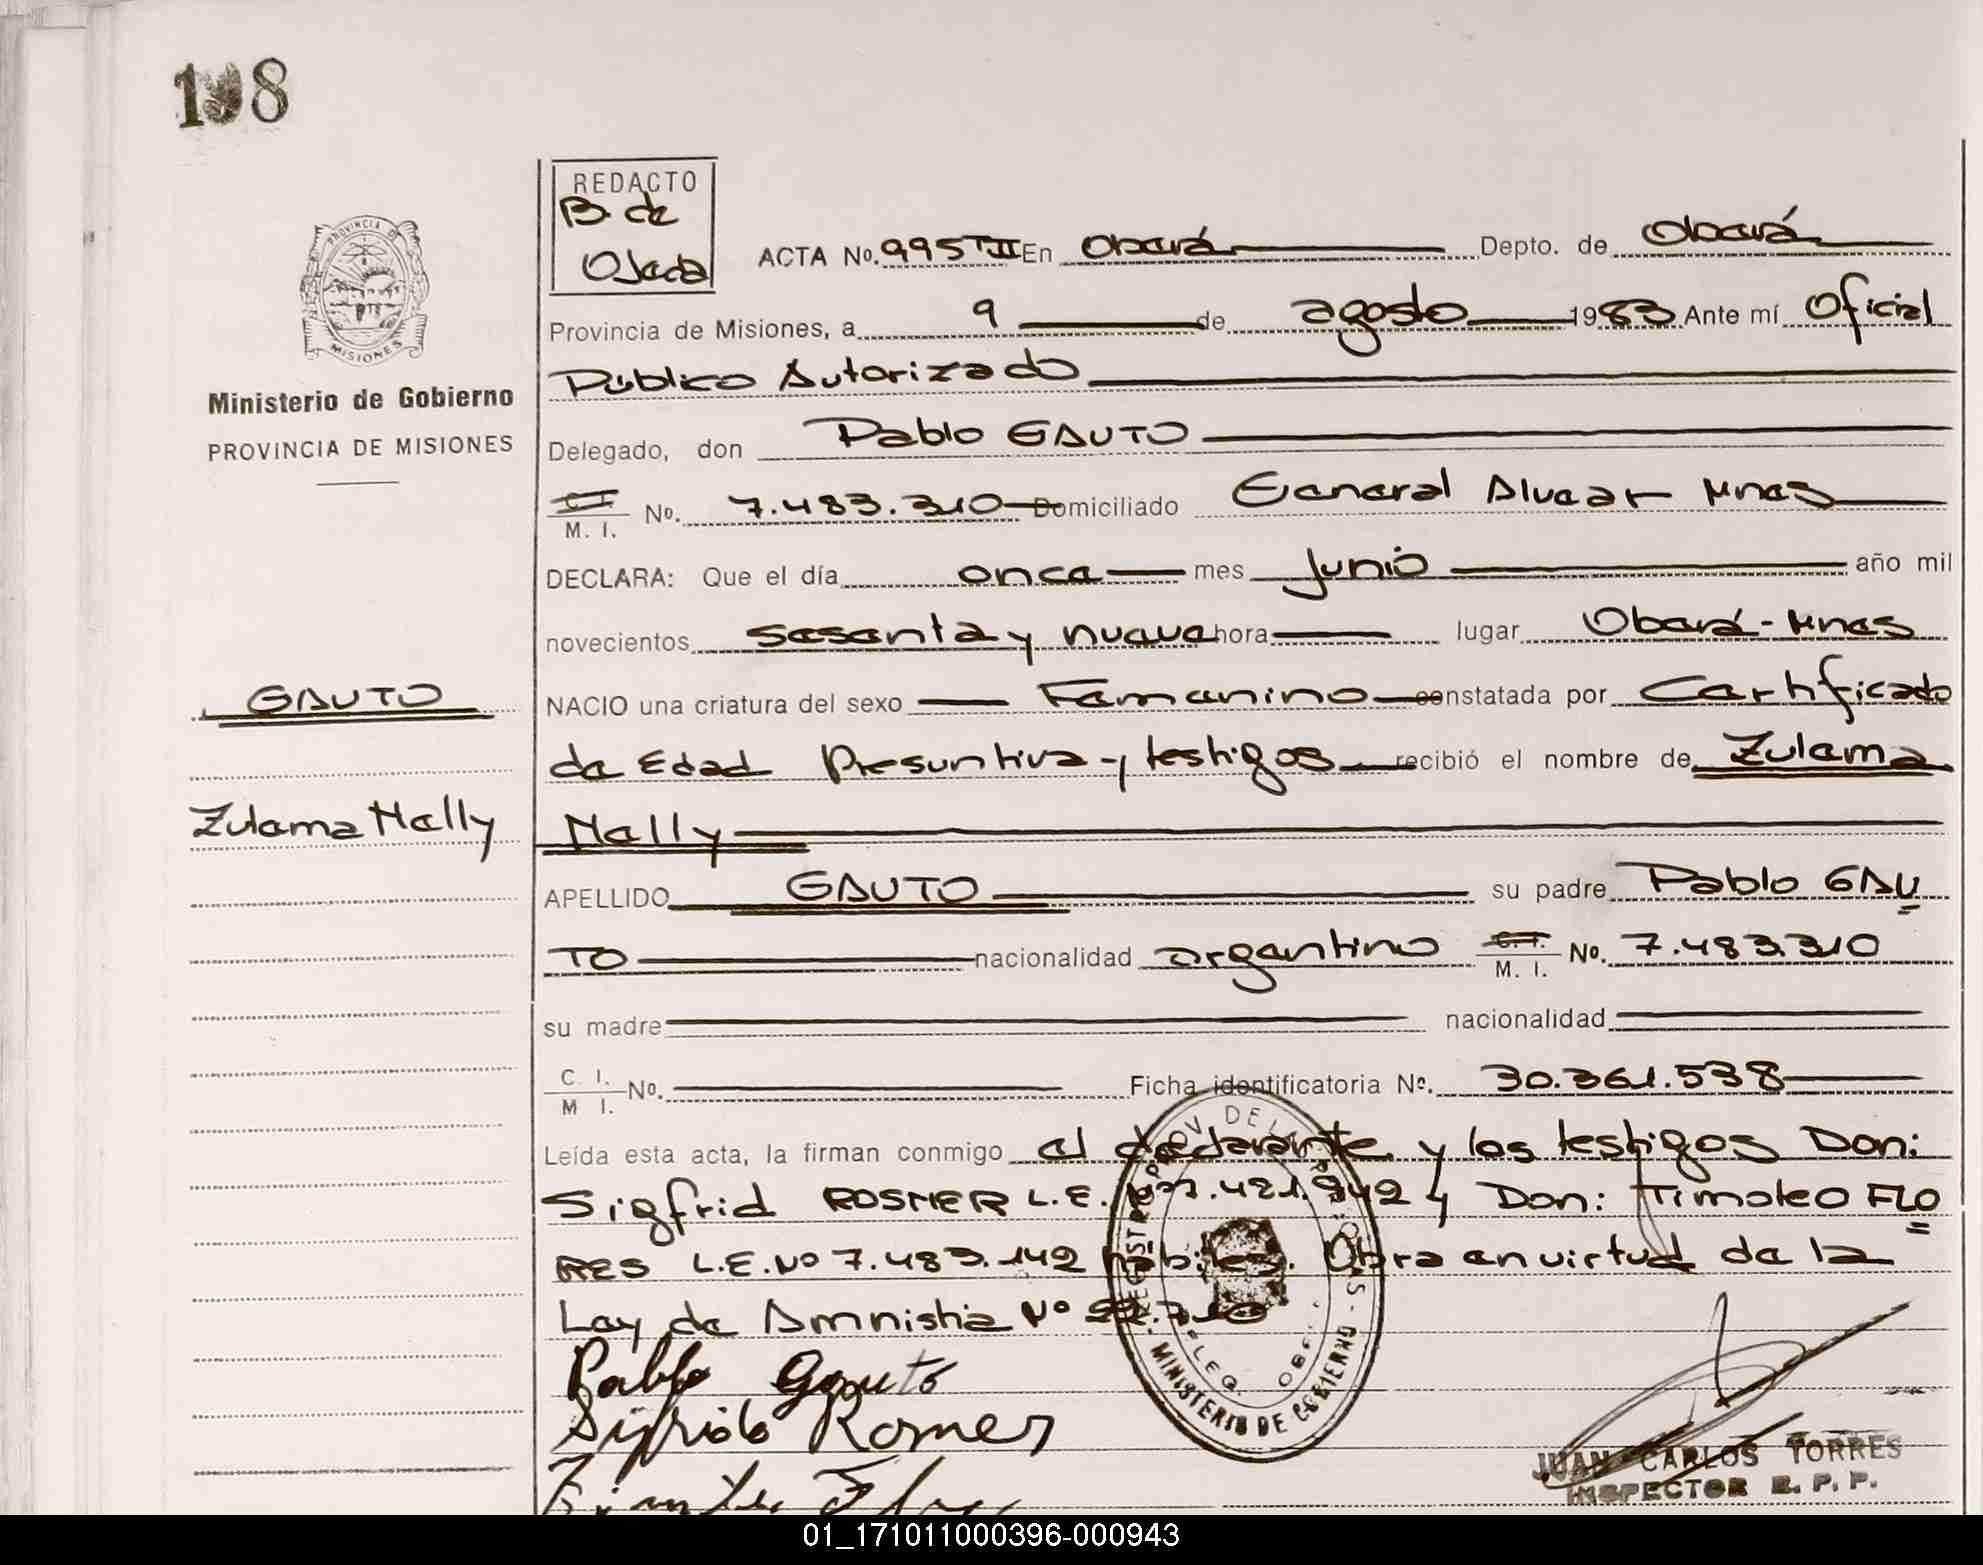 198
REDACTO
B. de
Ojeda
ACTA No. 995 TII En Oberá Depto. de Oberá
Provincia de Misiones, a 9 de agosto 1983 Ante mí Oficial
Público Autorizado
Delegado, don Pablo GAUTO
C. I. M. I. No. 7.483.310 Domiciliado General Alvear Mnes
DECLARA: Que el día once mes Junio año mil
novecientos sesenta y nueve hora lugar Oberá - Mnes
NACIO una criatura del sexo Femenino constatada por Certificado
de Edad Presuntiva y testigos recibió el nombre de Zulema
Nelly
APELLIDO GAUTO su padre Pablo GAU
TO nacionalidad argentino C. I. M. I. No. 7.483.310
su madre nacionalidad
C. I. M I. No. Ficha identificatoria No. 30.361.538
Leída esta acta, la firman conmigo el declarante y los testigos Don:
Sigfrid L.E. y Don: Timoteo FLO
RES L.E. No 7.483.142 Obra en virtud de la
Ley de Amnistia No
Pablo Gauto
JUAN CARLOS TORRES
INSPECTOR R. P. P.
PROVINCIA DE
MISIONES
Ministerio de Gobierno
PROVINCIA DE MISIONES
GAUTO
Zulema Nelly
MINISTERIO DE GOBIERNO
01_171011000396-000943